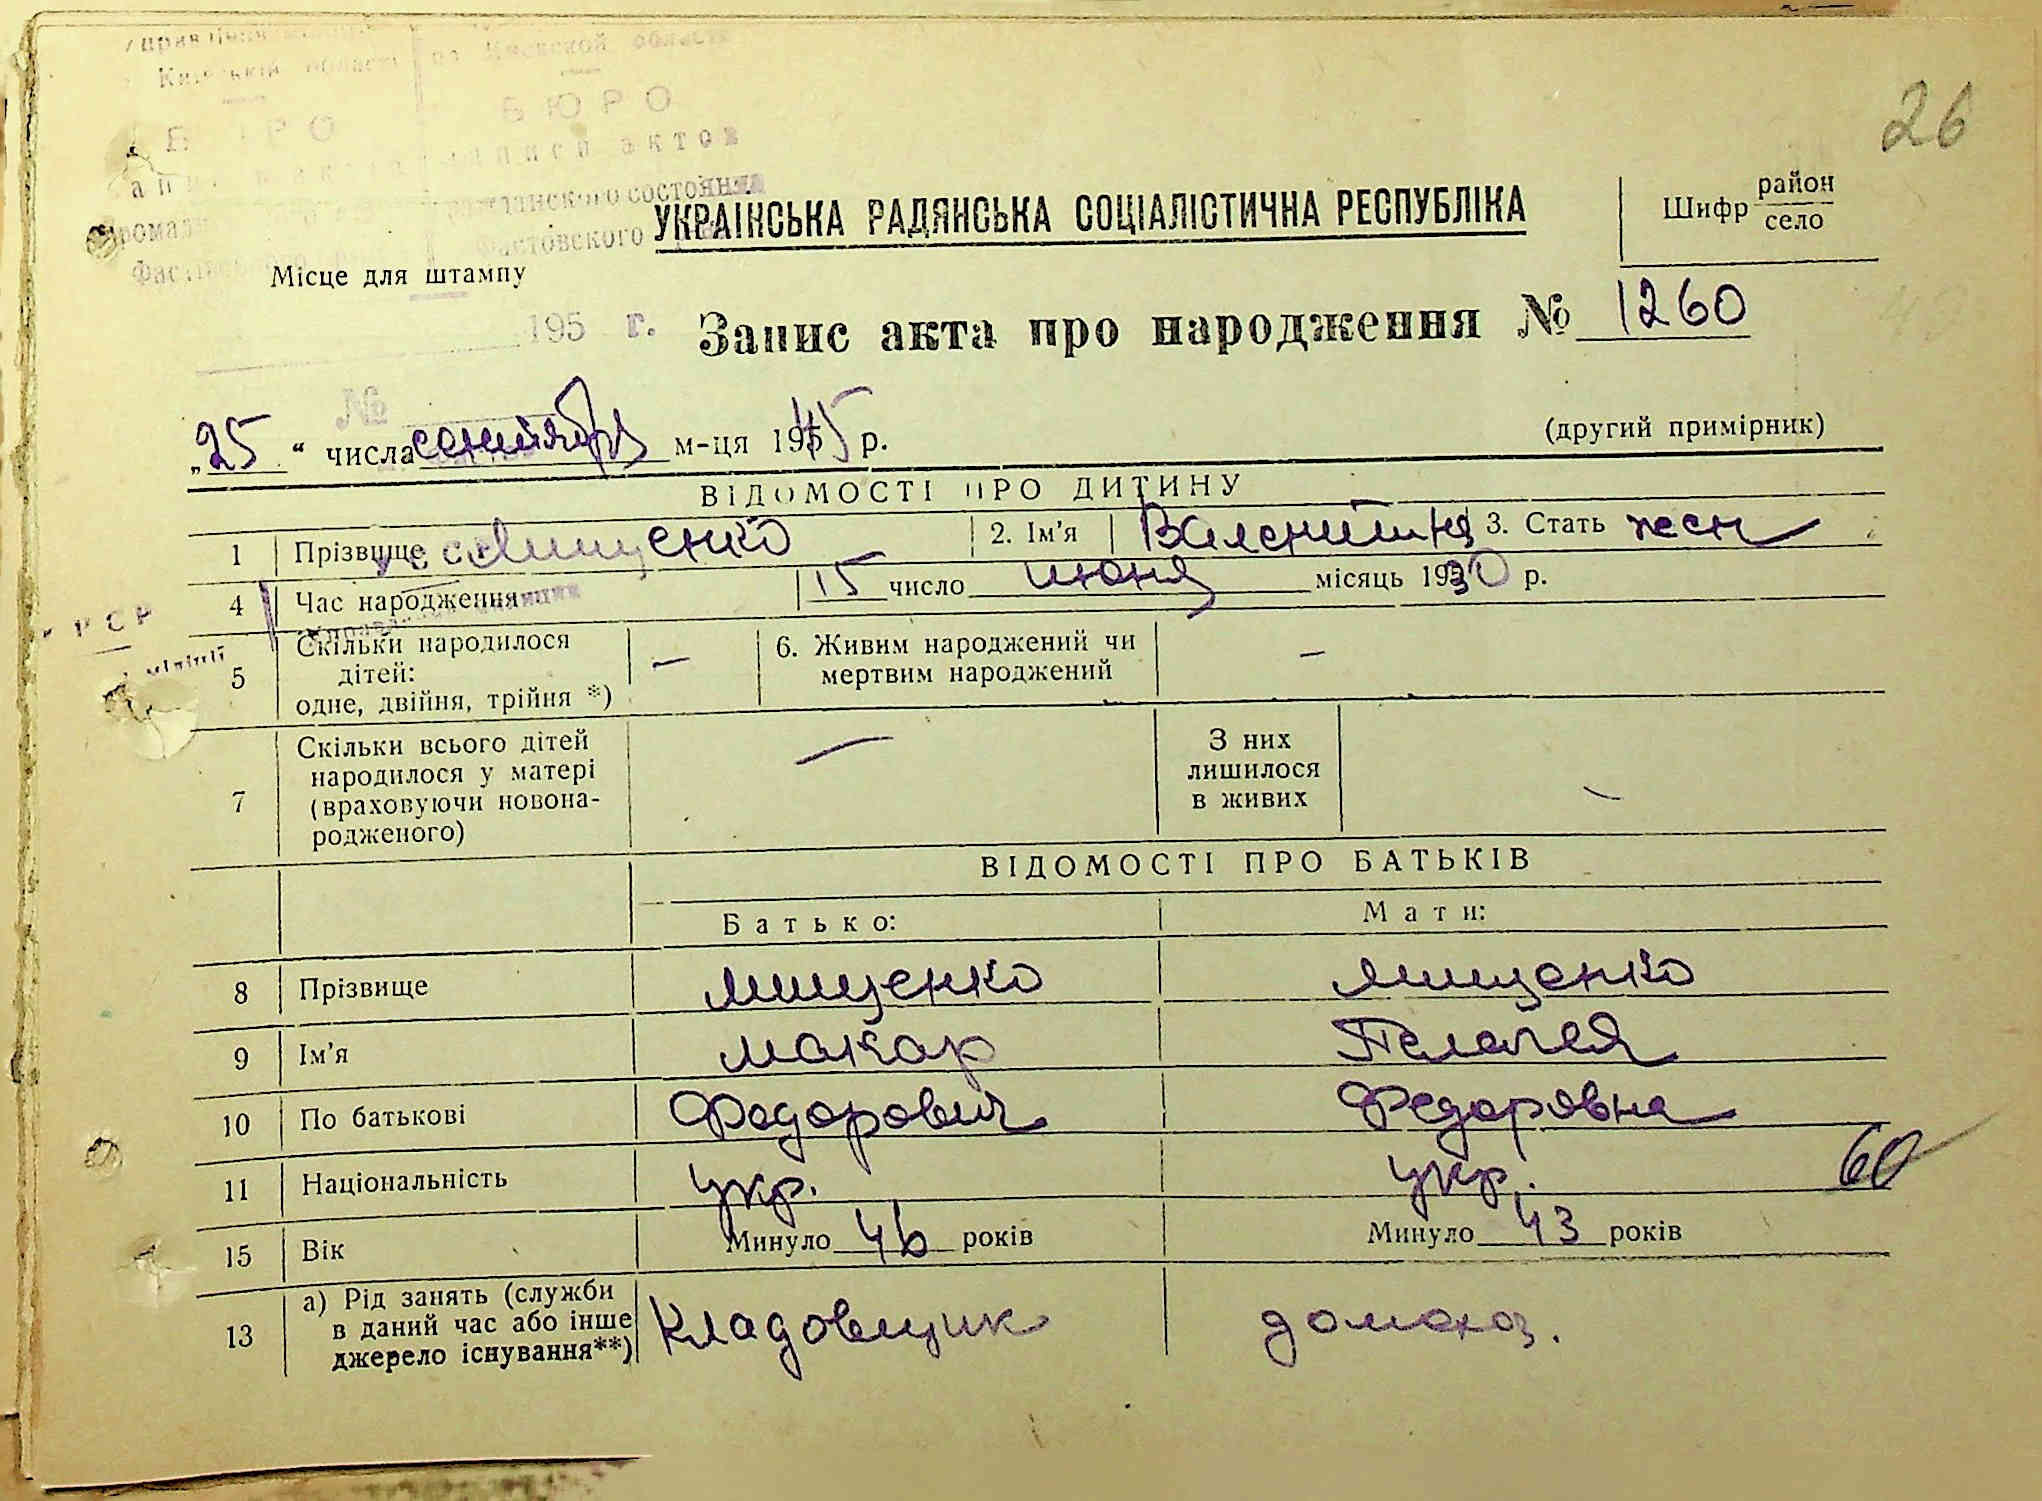 26
Київській області по Киевской области
БЮРО БЮРО
записи актов
гражданского состояния
Фастовского
УКРАЇНСЬКА РАДЯНСЬКА СОЦІАЛІСТИЧНА РЕСПУБЛІКА
Шифр район
село
Місце для штампу
195 г.
Запис акта про народження № 1260
№
„25“ числа сентября м-ця 1945 р.
(другий примірник)
ВІДОМОСТІ ПРО ДИТИНУ
1 Прізвище Мищенко 2. Ім'я Валентина 3. Стать жен
4 Час народження 15 число июня місяць 1930 р.
5 Скільки народилося дітей: одне, двійня, трійня *) — 6. Живим народжений чи мертвим народжений —
7 Скільки всього дітей народилося у матері (враховуючи новона-родженого) — З них лишилося в живих —
ВІДОМОСТІ ПРО БАТЬКІВ
Батько: Мати:
8 Прізвище Мищенко Мищенко
9 Ім'я Макар Пелагея
10 По батькові Федорович Федоровна
11 Національність укр. укр. 60
15 Вік Минуло 46 років Минуло 43 років
13 а) Рід занять (служби в даний час або інше джерело існування**) Кладовщик домохоз.